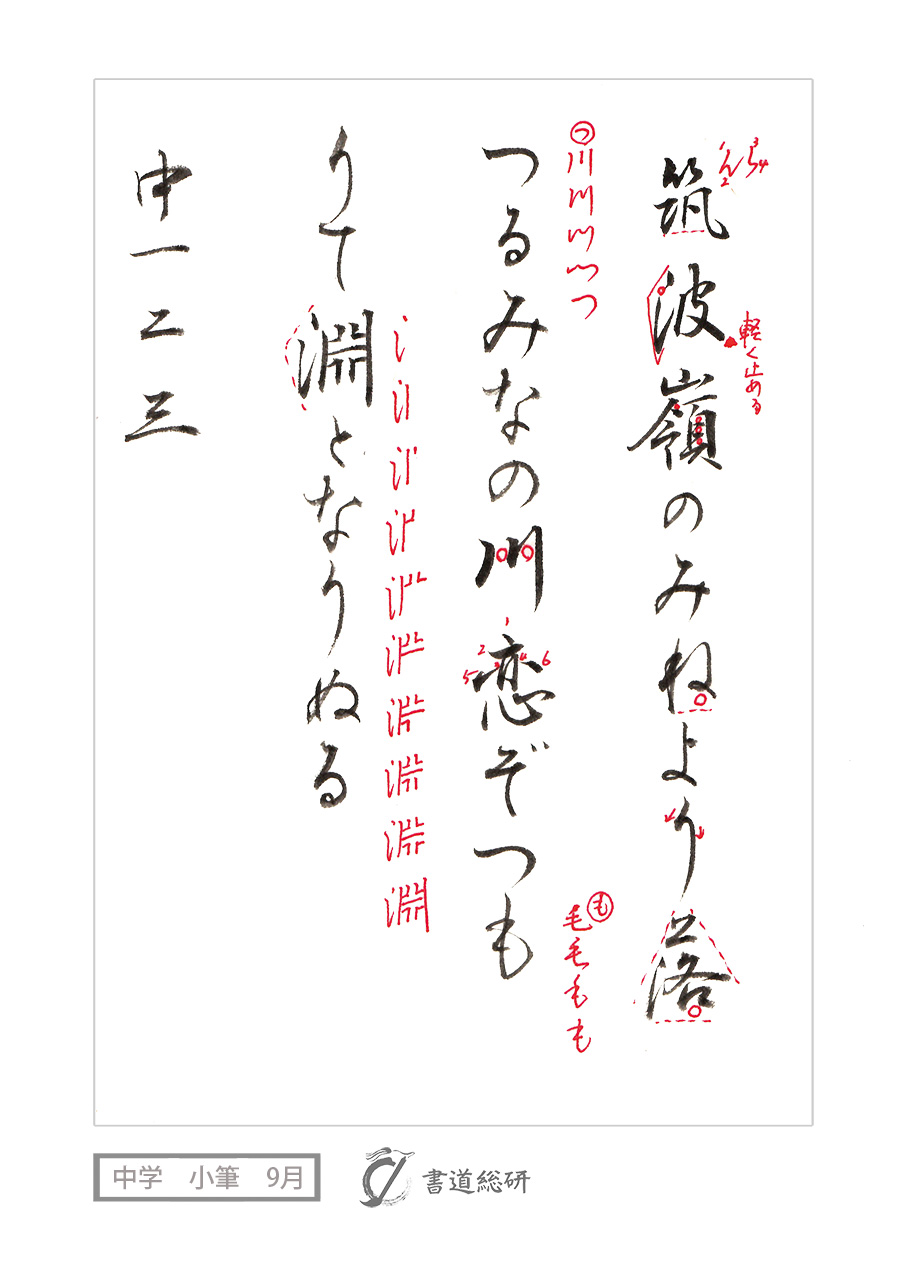 筑波嶺のみねより落
つるみなの川恋ぞつも
りて淵となりぬる
中一二三
軽く止める
つ
川川川つつ
1 2 3 4 5 6
も
毛毛もも
淵
中学 小筆 9月
書道総研